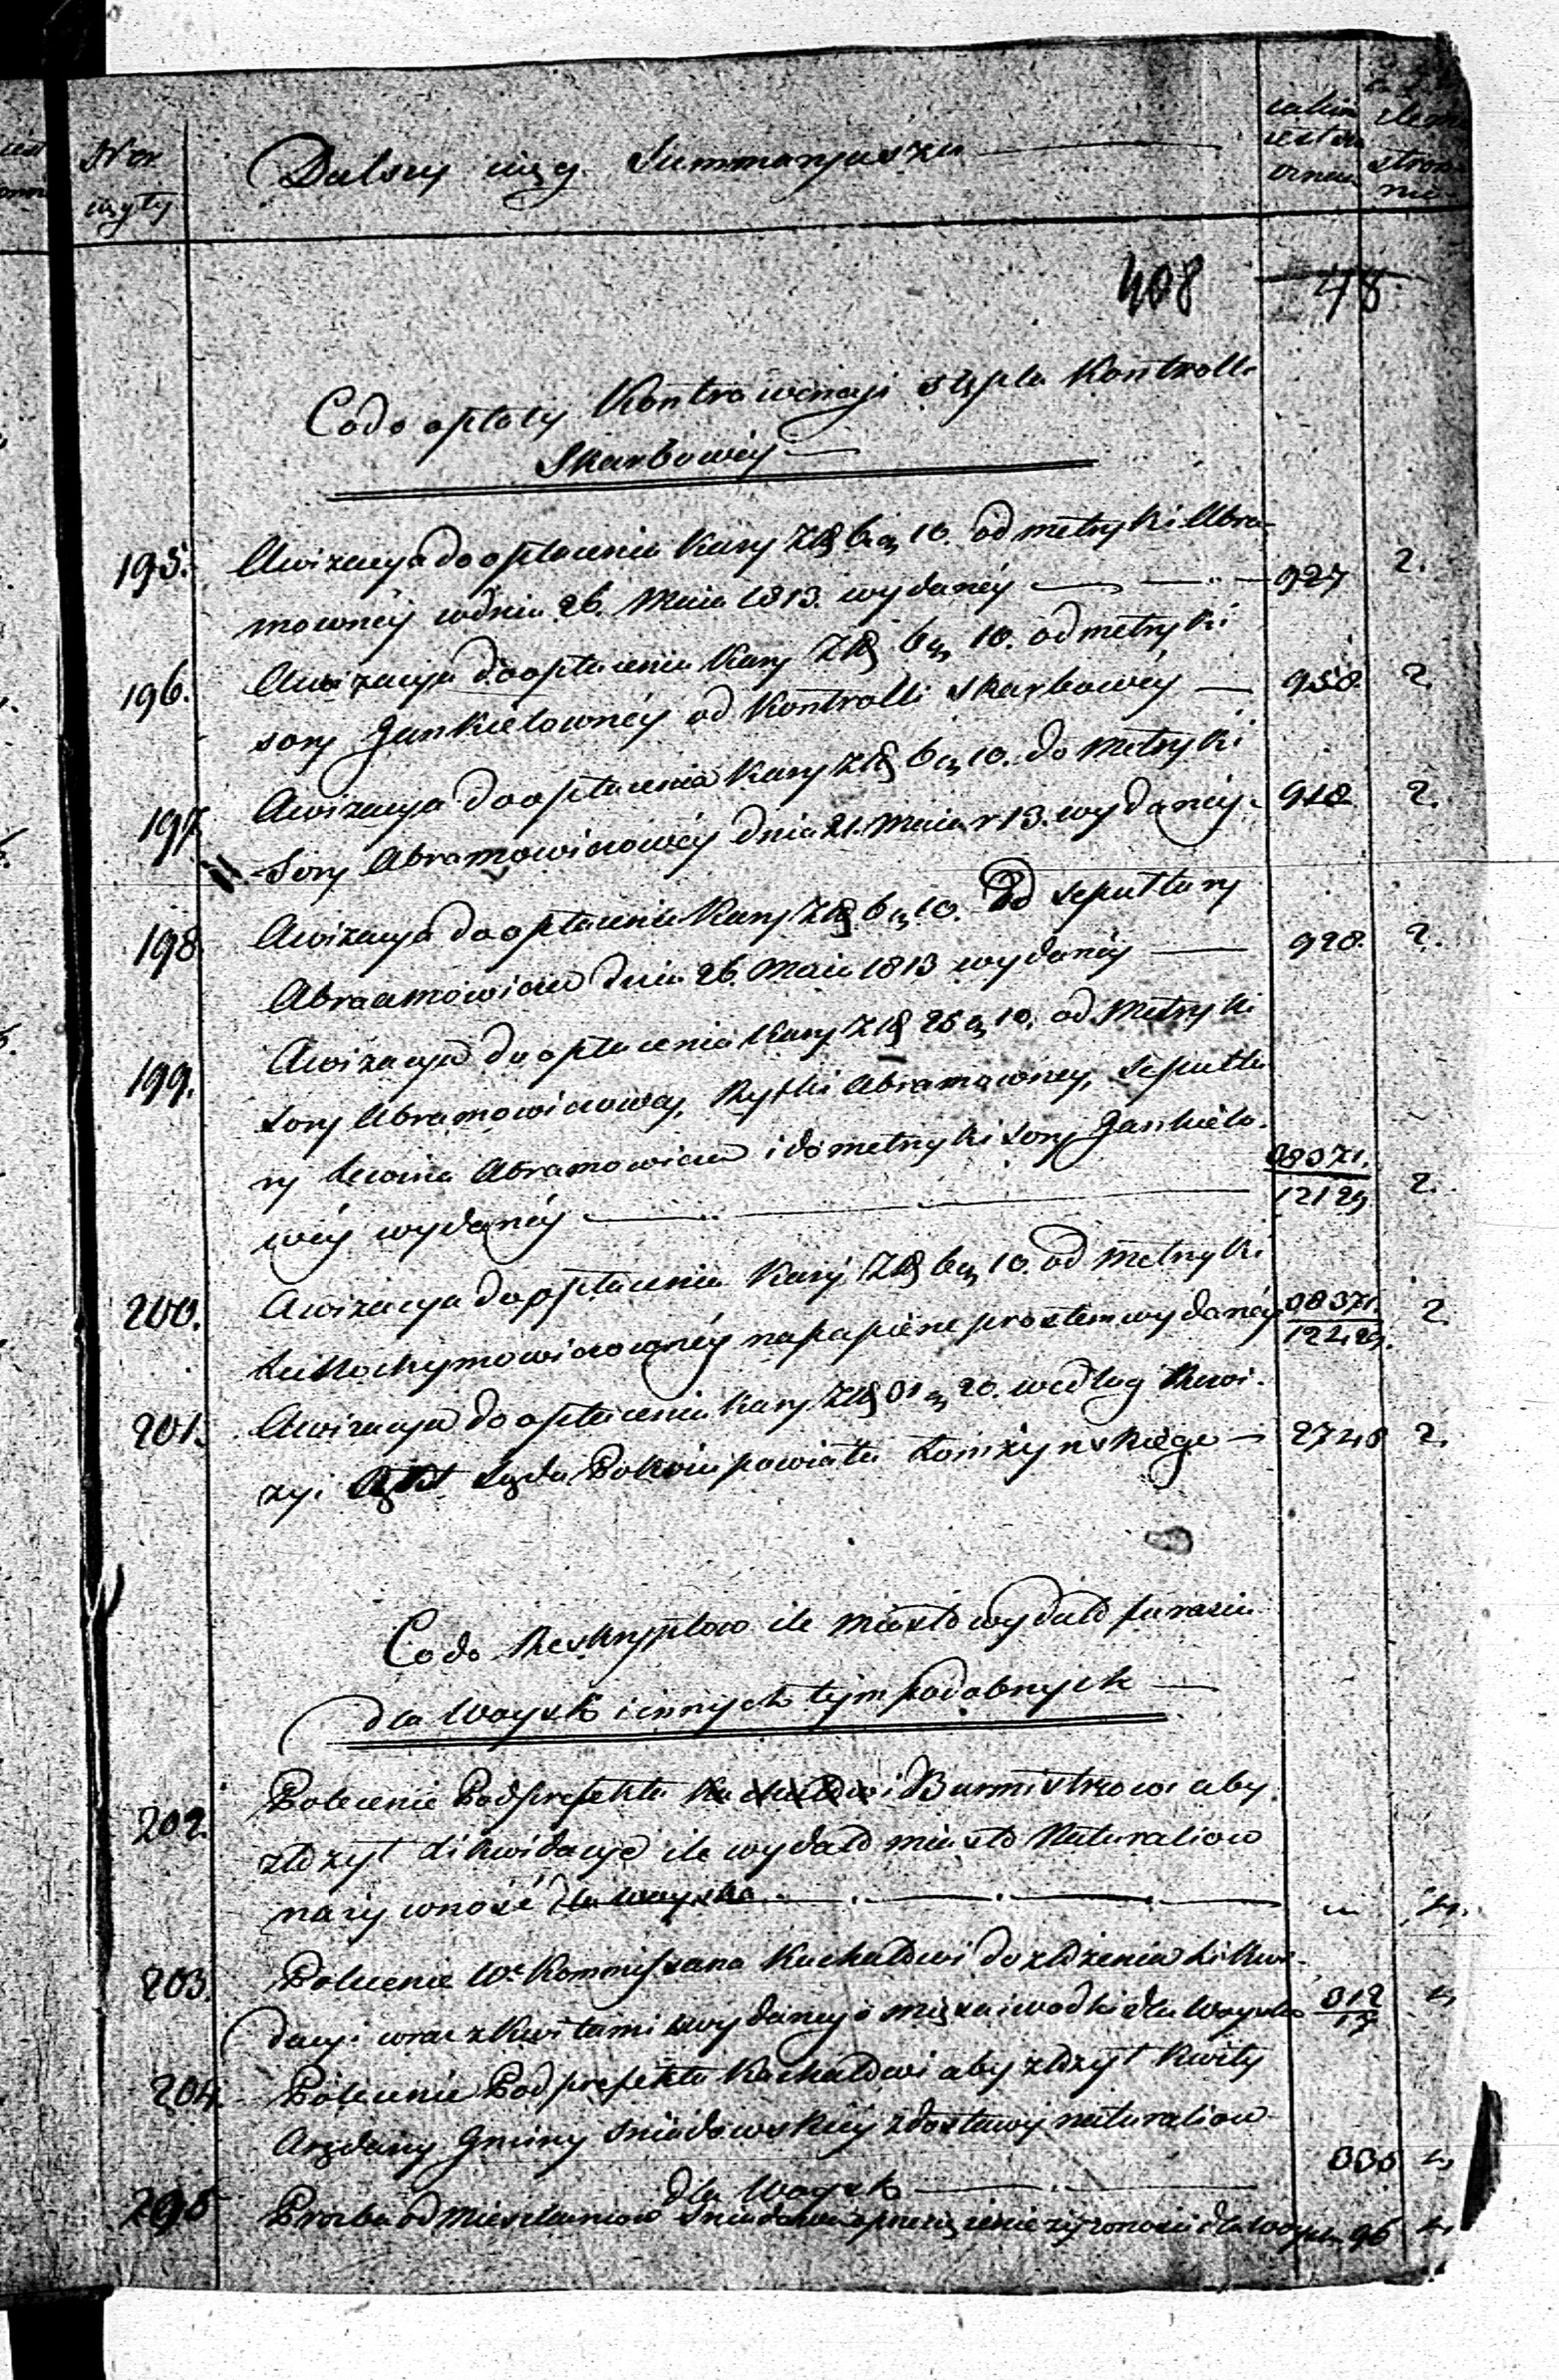 Nro
cyty
Dalszy ciąg Summaryusza
408
48
Co do opłaty Kontrawencyi stępla Kontrolli
Skarbowéy
195. Awizacya do opłacenia kary Zł 6 g 10. od metryki Abra-
mownéy wdniu 26. Maia 1813. wydanéy 927 2.
196. Awizacyia do opłacenia Kary Zł 6 g 10. od metryki
Sory Jankielownéy od Kontrolli Skarbowéy 958 2.
197. Awizacya do opłacenia Kary Zł 6 g 10. do Metryki
Sory Abramowiczowéy dnia 21. Maia r 13. wydanéy 918 2.
198 Awizacya do opłacenia Kary Zł 6 g 10. Od sepultury
Abraamowicza dnia 26. Maia 1813 wydanéy 928. 2.
199. Awizacya do opłacenia Kary Zł 25 g 10. od Metryki
Sory Abramowiczowey, Ryfki Abramowney, Sepultu
ry Lewina Abramowicza i do metryki Sory Jankielo-
wéy wydanéy 12129 2.
200. Awizacya do opłacenia Kary Zł 6 g 10. od Metryki
na papiére prostem wydanéy 2.
201. Awizacya do opłacenia Kary Zł 31 g 20. według Rewi-
zyi Sądu Pokoiu powiatu Łomżynskiégo 2748 2.
Co do Reskryptow ile miasto wydało furaszu
dla Woysk i innych tym podobnych
202. Polecenie Podprefekta Burmistrzowi aby
złożył Likwidacyé ile wydało miasto Naturaliow
na żywność dla woyska
203. Polecenie We Kommissarza Kuchałowi do złożenia Likwi-
dacyi wraz z Kwitami wydanego mięsa i wodki dla Woyska 312
17
204. Polecenie Podprefekta Kuchałowi aby złożył Kwity
Gminy Sniadowskiéy z dostawy naturaliow
dla Woyska 335
205 Prozba od Mieszkancow Sniadowa żywności dla Woyska 96